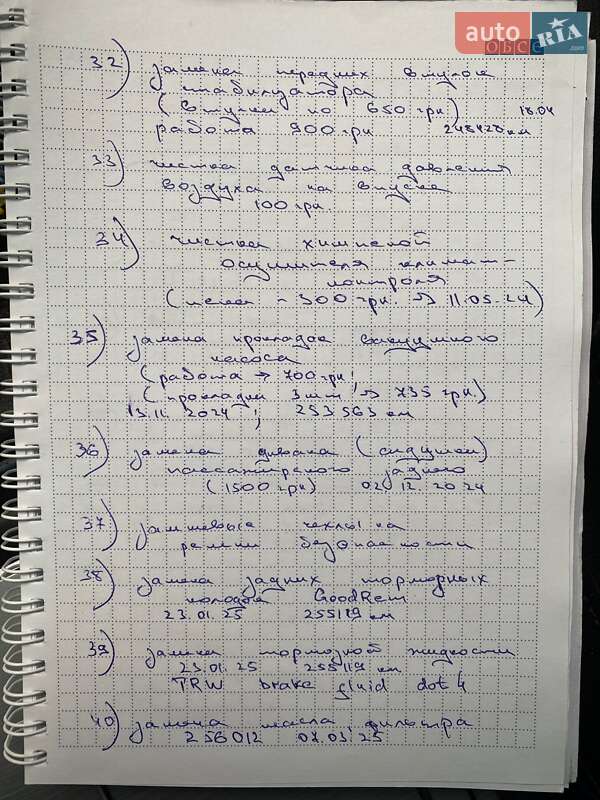 auto RIA.com
ОБСЄ
32) замена передних втулок
стабилизатора
(втулки по 650 грн) 18.04
работа 900 грн 248428 км
33) чистка датчика давления
воздуха на впуске
100 грн.
34) чистка химией
осушителя климат-
контроля
(пена - 300 грн. → 11.05.24)
35) замена прокладок вакуумного
насоса
(работа → 700 грн;
(прокладки 3 шт → 735 грн.)
13.11.2024; 253563 км
36) замена дивана (сидушки)
пассажирского заднего
(1500 грн) 02.12.2024
37) замшевые чехлы на
ремни безопасности
38) замена задних тормозных
колодок GoodRem
23.01.25 255119 км
39) замена тормозной жидкости
23.01.25 255119 км
TRW brake fluid dot 4
40) замена масла, фильтра
256012 02.03.25